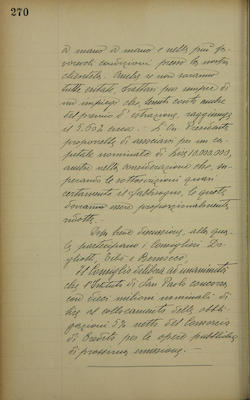 270
a mano a mano e nelle più fa-
vorevoli condizioni presso la nostra
clientela. Anche se non saranno
tutte esitate, trattasi pur sempre di
un impiego che, tenuti conto anche
del premio d'estrazione, raggiunge
il 5.60% circa. - Il Sn Presidente
proporrebbe di associarsi per un ca-
pitale nominale di Lire 10.000.000,
anche nella considerazione che, su-
perando le sottoscrizioni quasi
certamente il fabbisogno, le quote
dovranno essere proporzionalmente
ridotte. -
Dopo breve discussione, alla qua-
le partecipano i Consiglieri
e
Il Consiglio delibera ad unanimità
che l'Istituto di San Paolo concorra
con dieci milioni nominali di
lire al collocamento delle obbli-
gazioni 5% nette del Consorzio
di Credito per le opere pubbliche
di prossima emissione. -